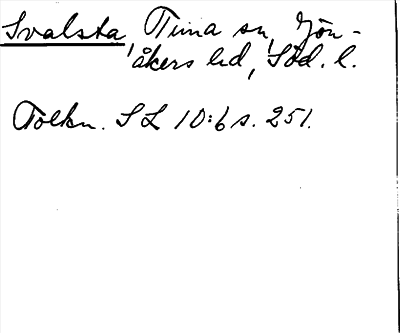 Svalsta, Tuna sn, Jön-
åkers hd, Söd. l.
Tolkn. SL 10:6 s. 251.